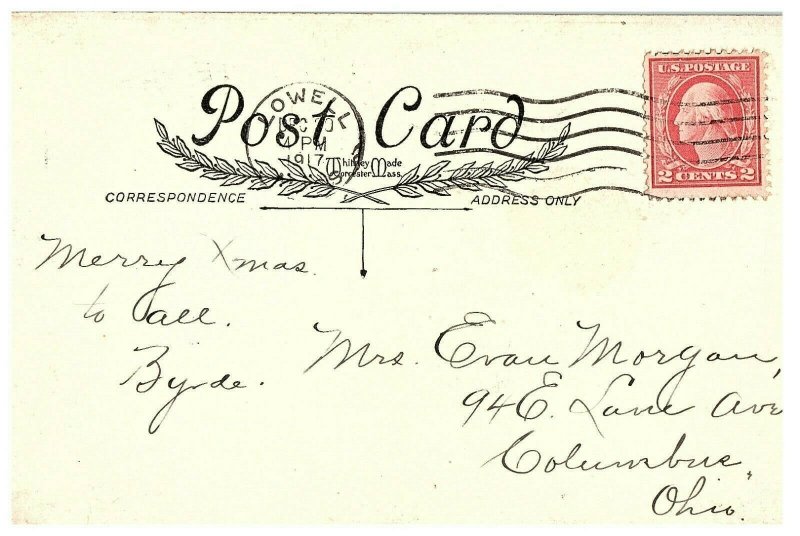 Post Card
U.S. POSTAGE
2 CENTS 2
LOWELL
4 PM
1917
Whitney Made
Worcester Mass.
CORRESPONDENCE
ADDRESS ONLY
Merry Xmas
to all.
Byrde.
Mrs. Evan Morgan,
94 E. Lane Ave
Columbus,
Ohio.